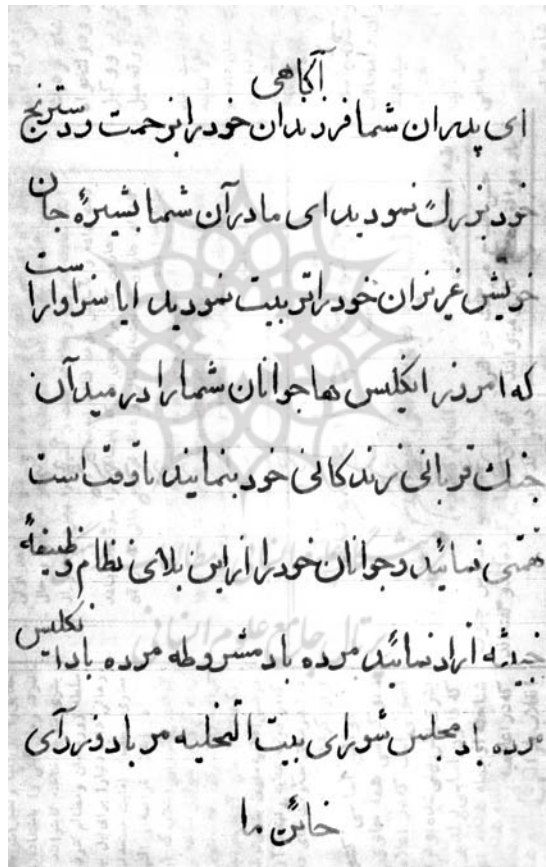 آگاهی
ای پدران شما فرزندان خود را بزحمت و دسترنج
خود بزرگ نمودید ای مادرآن شما بشیرهٔ جان
خویش عزیزان خود را تربیت نمودید ایا سزاوار است
که امروز انگلیس ها جوانان شما را در میدآن
جنك قربانی زندگانی خود بنمایند تا وقت است
همتی نمائید و جوانان خود را از این بلای نظام وظیفهٔ
خبیثه آزاد نمائید مرده باد مشروطه مرده باد انگلیس
مرده باد مجلس شورای بیت التخلیه مرباد وزرآی
خائن ما
پرتال جامع علوم انسانی